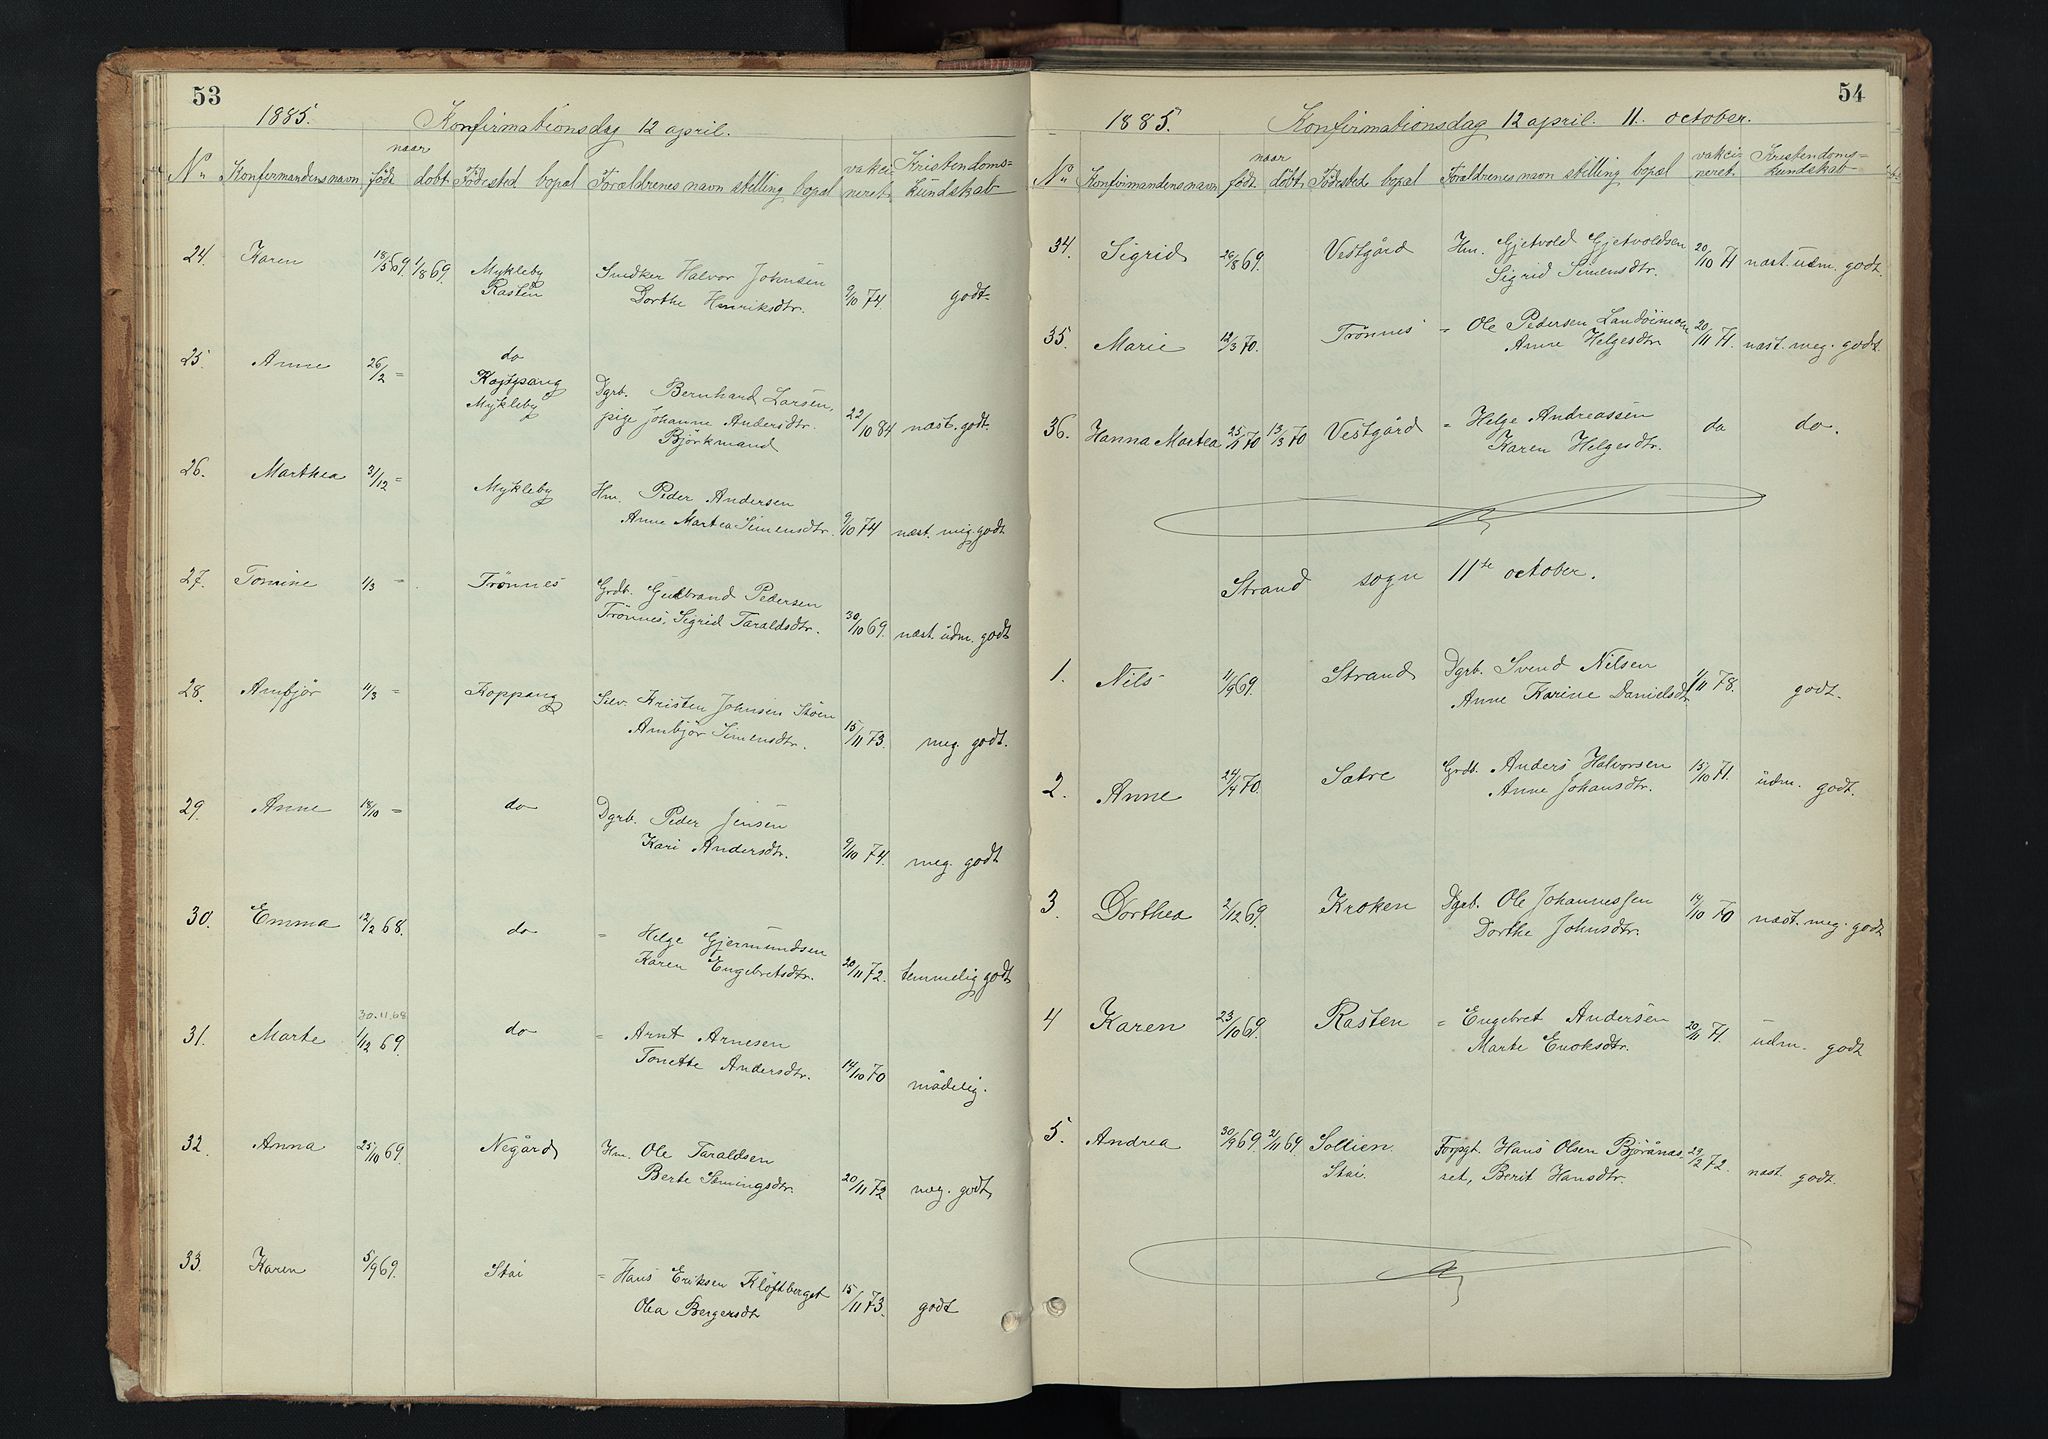 53
1885. Konfirmationsdag 12 april.
naar
No Konfirmandens navn født døbt Fødested bopæl Forældrenes navn stilling bopæl vakci- Kristendoms=
neret. kundskab
24. Karen 18/5 69. 1/8 69. Mykleby Snedker Halvor Johnsen
Rasten Dorthe Henriksdtr. 9/10 74. godt.
25. Anne 26/2 = do
Koppang Dgrb. Bernhard Larsen,
Mykleby pige Johanne Andersdtr. 22/10 84 næst. godt.
Björkmand
26. Marthea 31/12 = Mykleby Hm. Peder Andersen
Anne Martea Simensdtr. 9/10 74 næst. meg. godt
27. Tomine 1/3 = Trönnes Grdb. Gulbrand Pedersen
Trönnes, Sigrid Taraldsdtr. 30/10 69. næst. udm. godt
28. Ambjör 11/3 = Koppang Selv. Kristen Johnsen Støen
Ambjör Simensdtr. 15/11 73. meg. godt.
29. Anne 18/10 = do Dgrb. Peder Jensen
Kari Andersdtr. 9/10 74. meg. godt
30. Emma 12/2 68. do = Helge Gjermundsen
Karen Engebretsdtr. 20/11 72. temmelig godt
30.11.68
31. Marte 1/12 69. do = Arnt Arnesen
Tonette Andersdtr. 14/10 70 mådelig.
32. Anna 25/10 69. Negård Hm. Ole Taraldsen
Berte Semingsdtr. 20/11 72 meg. godt
33. Karen 5/9 69. Stai = Hans Eriksen Klöftberget
Olea Bergersdtr 15/11 73. godt
54
1885. Konfirmationsdag 12 april. 11. october.
naar
No Konfirmandens navn født døbt Fødested bopæl Forældrenes navn stilling bopæl vakci- Kristendoms=
neret. kundskab
34. Sigrid 26/8 69. Vestgård Hm. Gjetvold Gjetvoldsen 20/10 71 næst. udm. godt.
Sigrid Simensdtr.
35. Marie 12/3 70. Trönnes = Ole Pedersen Landöimoen 20/11 71. næst. meg. godt.
Anne Helgesdtr
36. Hanna Martea 25/1 70 13/3 70 Vestgård = Helge Andreassen do do.
Karen Helgesdtr.
Strand sogn 11te october.
1. Nils 11/9 69. Strand Dgrb. Svend Nilsen 1/11 78. godt.
Anne Karine Danielsdtr
2. Anne 24/4 70. Sætre Grdb. Anders Halvorsen 15/10 71. udm. godt.
Anne Johansdtr.
3. Dorthea 2/12 69. Kroken Dgrb. Ole Johannessen 14/10 70 næst. meg. godt
Dorthe Johnsdtr.
4 Karen 23/10 69. Rasten = Engebret Andersen 20/11 71. udm. godt
Marte Enoksdtr.
5. Andrea 30/9 69. 21/11 69 Sollien. Forpgt. Hans Olsen Björånæs- 29/2 72. næst. godt.
Stai. set, Berit Hansdtr.